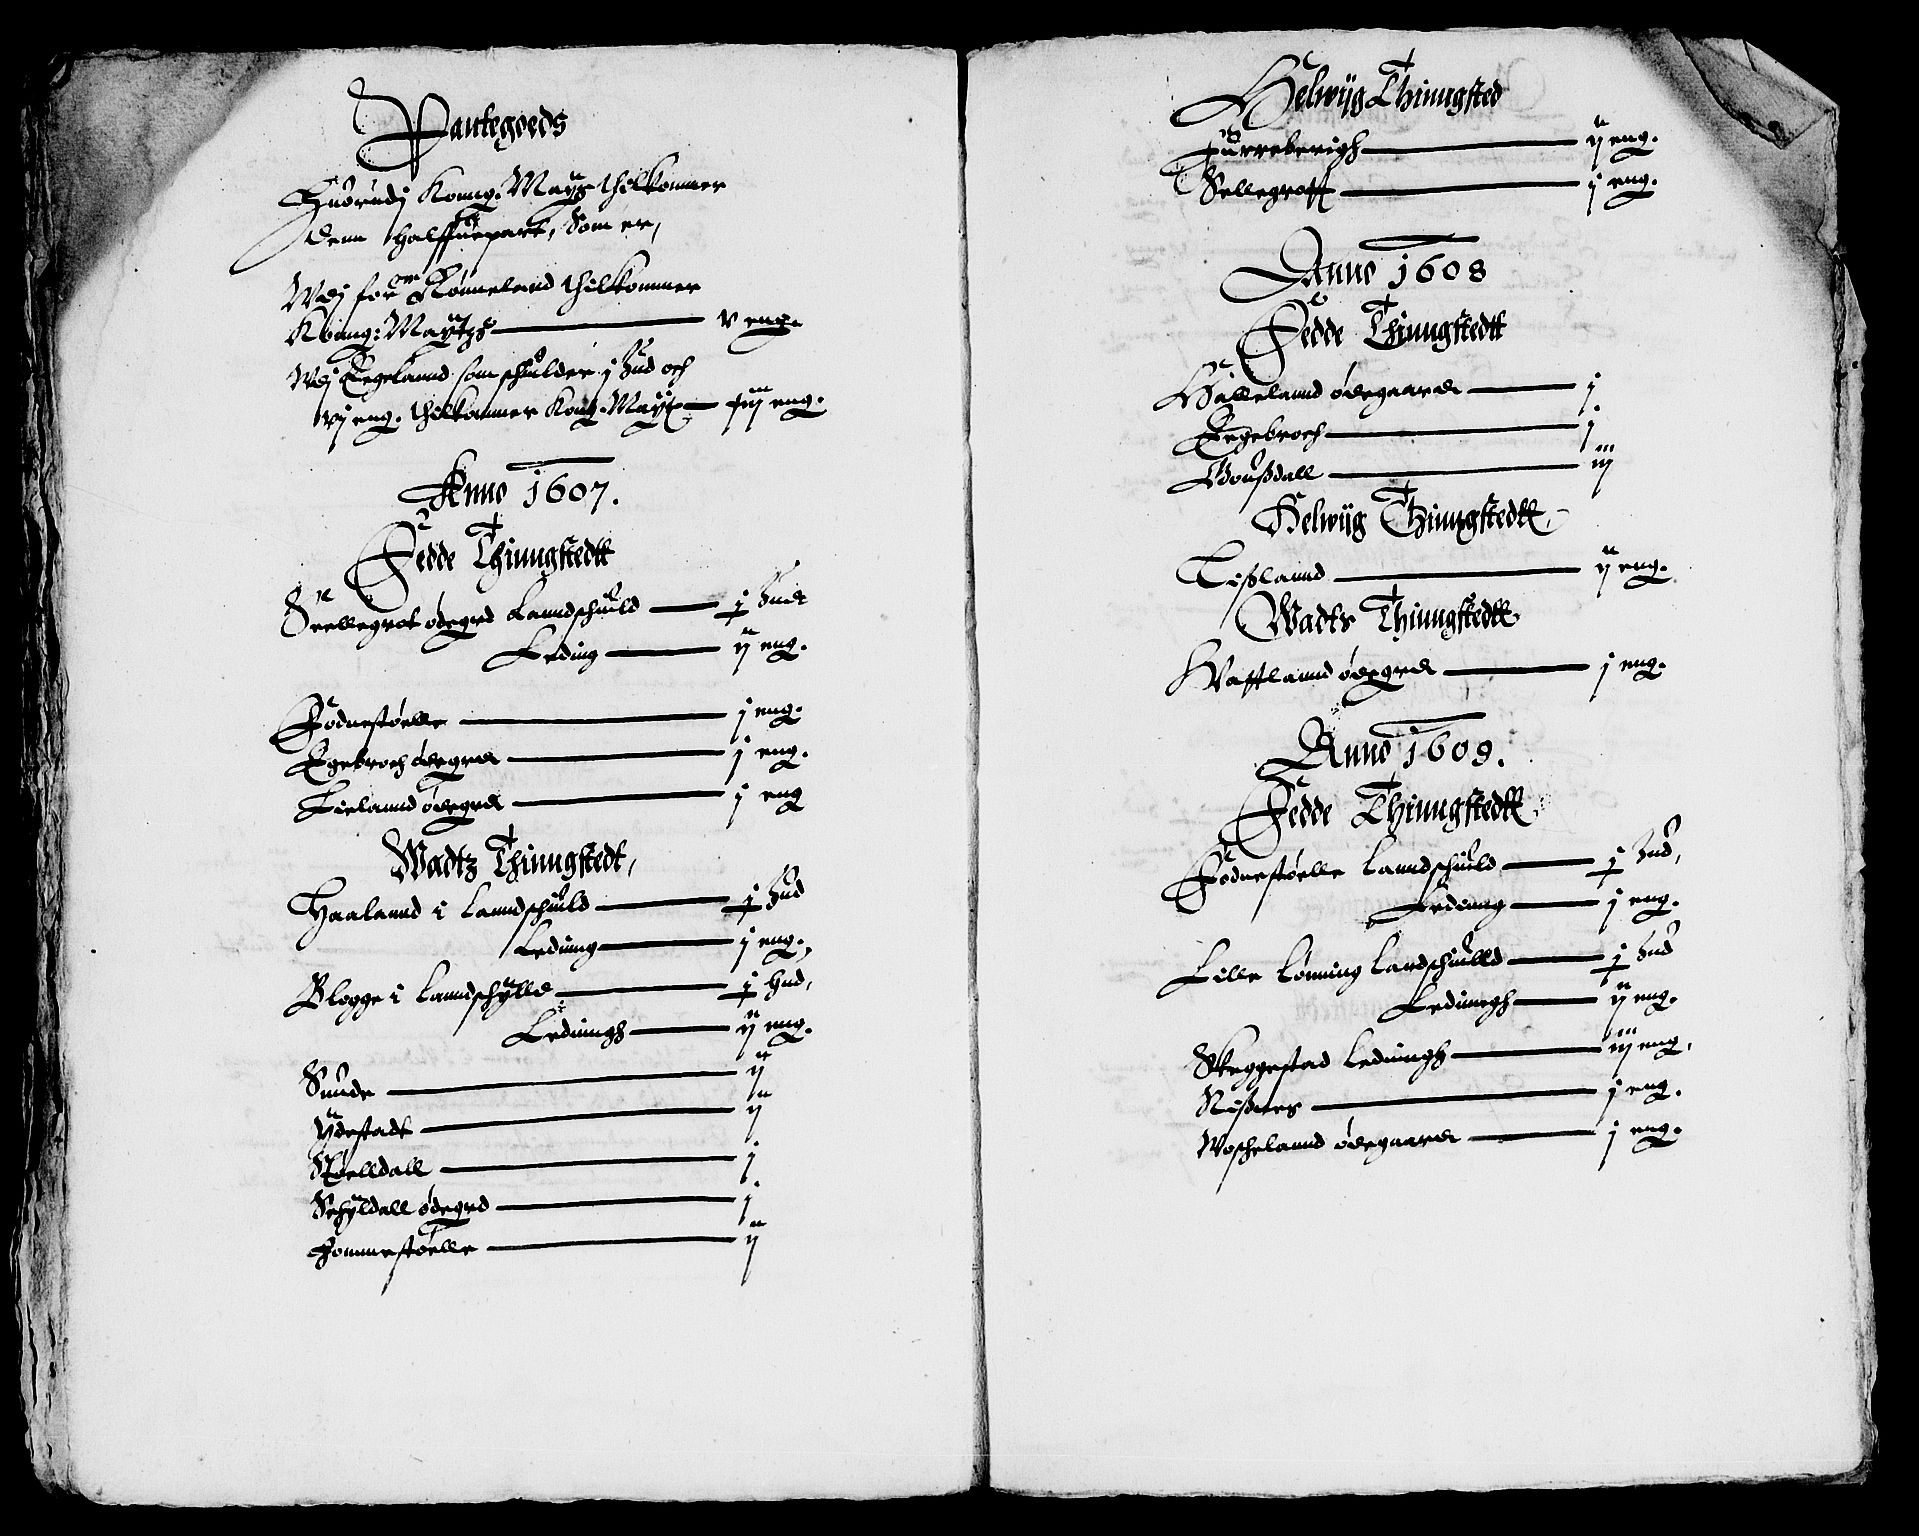 Pantegoeds
Huorudj Konng: Mayts thilkommer
denn halffuepart, som er,
Wdj for Rønneland thilkommer
Konng: Maytzs v eng.
Wdj Eegelannd som schulder j Hud och
vj eng. thilkommer Kong: Mayt eng.
Anno 1607.
Fedde Thinngstedtt
Seellegrot ødegrd Lanndschuld j Hudt
Leding ij eng.
Fodnestøelle j eng.
Egebroch ødegrd j eng.
Lielannd ødegrd j eng
Wadtz Thinngstedt,
Haalannd i Lanndschuld j Hud
Ledinng j eng.,
Blogge i Lanndschylld j Hud,
Ledinngh ij eng.
Sunde ij
Ydestadt ij
Røelldall j
Schyldall ødegrd j
Hommestøelle ij
Helwijg Thinngsted
Furreberigh ij eng.
Sellegroff j eng.
Anno 1608
Fedde Thinngstedtt
Hallelannd ødegaardt j
Eegebroch j
Gousdall iij
Helwijg Thinngstedtt,
Tislannd ij eng.
Wadts Thinngstedtt
Qvafflannd ødegrdt j eng.
Anno 1609.
Fedde Thinngstedtt.
Fodnestøelle Lanndschuld j Hud,
Ledinng j eng.
Lille Lønning Landschuld j Hud
Ledinngh ij eng.
Skeggestad Ledinngh iij eng.
Risnes j eng.
Woschelannd ødegaardt j eng.